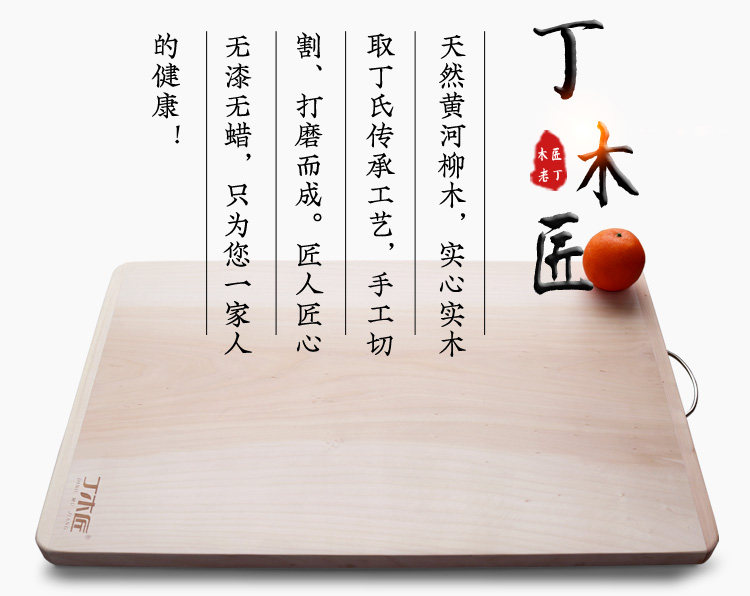 丁木匠
木匠
老丁
天然黄河柳木，实心实木
取丁氏传承工艺，手工切
割、打磨而成。匠人匠心
无漆无蜡，只为您一家人
的健康！
丁木匠